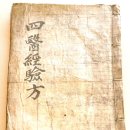 四醫經驗方